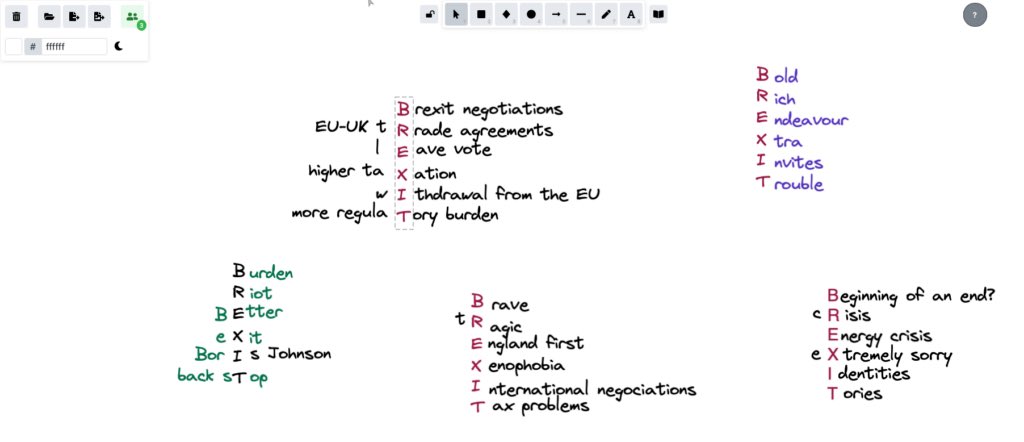 # ffffff
3
A
?
Brexit negotiations
EU-UK tRrade agreements
lEave vote
higher taXation
wIthdrawal from the EU
more regulaTory burden
Bold
Rich
Endeavour
Xtra
Invites
Trouble
Burden
Riot
BEtter
eXit
BorIs Johnson
back sTop
Brave
tRagic
England first
Xenophobia
International negociations
Tax problems
Beginning of an end?
cRisis
Energy crisis
eXtremely sorry
Identities
Tories